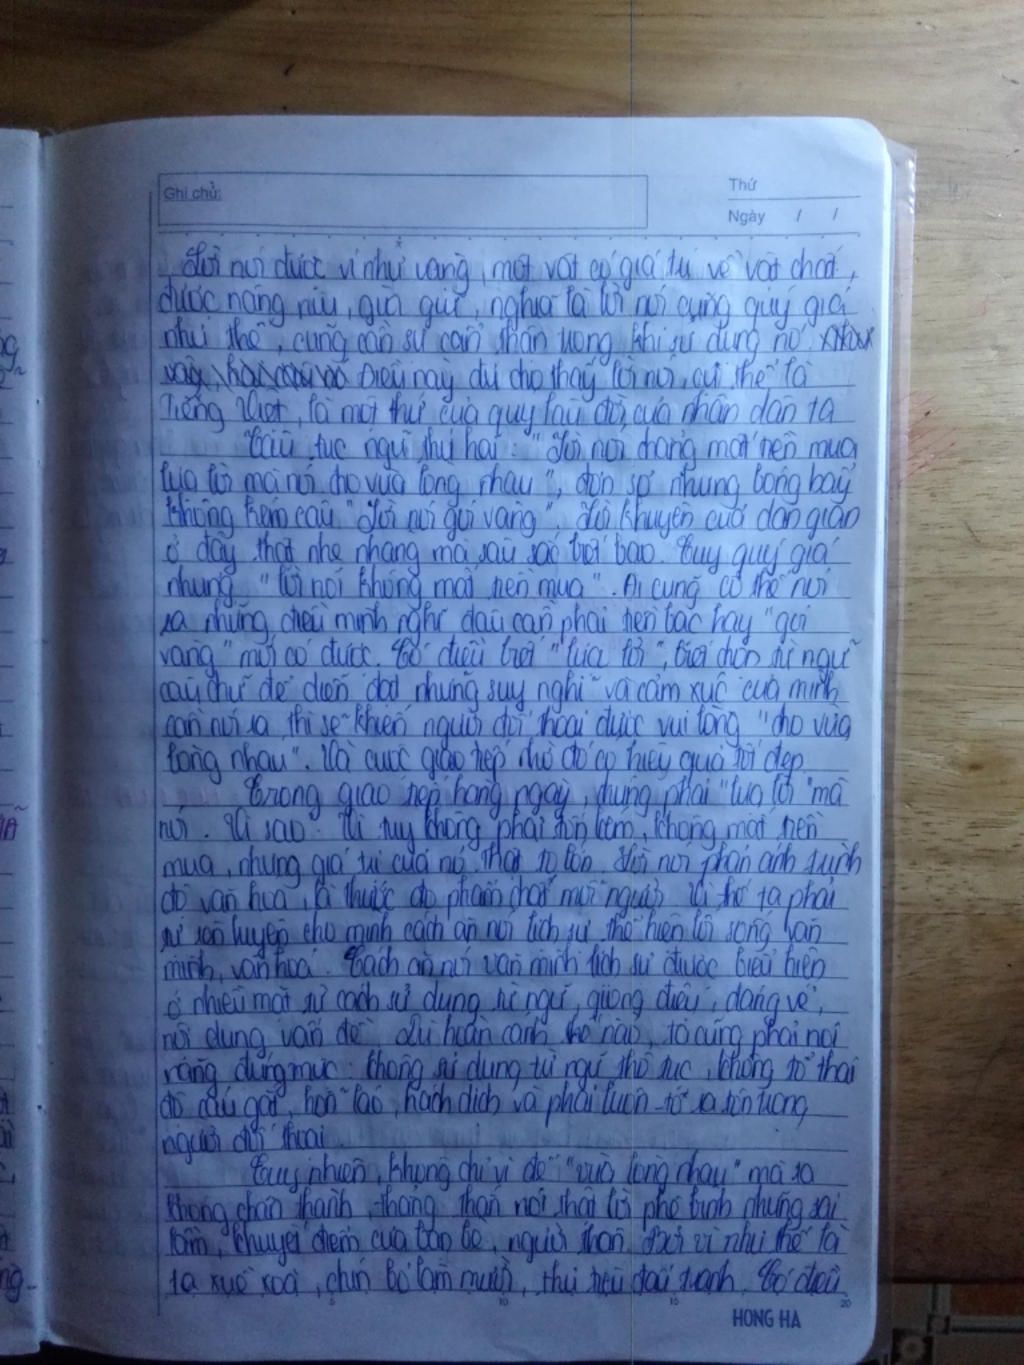 Ghi chú:
Thứ
Ngày / /
Lời nói được ví như vàng, một vật có giá trị về vật chất,
được nâng niu, giữ gìn, nghĩa là lời nói cũng quý giá
như thế, cũng cần sự cẩn thận trong khi sử dụng nó.
Điều này đủ cho thấy lời nói, cụ thể là
Tiếng Việt, là một thứ của quý lâu đời của nhân dân ta
Câu tục ngữ thứ hai: "Lời nói chẳng mất tiền mua
lựa lời mà nói cho vừa lòng nhau", đơn sơ nhưng bóng bẩy
không kém câu "Lời nói gói vàng". Lời khuyên của dân gian
ở đây thật nhẹ nhàng mà sâu sắc biết bao. Tuy quý giá
nhưng "lời nói không mất tiền mua". Ai cũng có thể nói
ra những điều mình nghĩ đâu cần phải tiền bạc hay "gói
vàng" mới có được. Có điều biết "lựa lời", biết chọn từ ngữ
câu chữ để diễn đạt những suy nghĩ và cảm xúc của mình
cần nói ra thì sẽ khiến người đối thoại được vui lòng "cho vừa
lòng nhau". Và cuộc giao tiếp nhờ đó có hiệu quả tốt đẹp
Trong giao tiếp hằng ngày, chúng phải "lựa lời" mà
nói. Vì sao. Vì tuy không phải tốn kém, không mất tiền
mua, nhưng giá trị của nó thật to lớn. Lời nói phản ánh trình
độ văn hoá, là thước đo phẩm chất mỗi người. Vì thế ta phải
tự rèn luyện cho mình cách ăn nói lịch sự thể hiện lối sống văn
minh, văn hoá. Cách ăn nói văn minh lịch sự được biểu hiện
ở nhiều mặt từ cách sử dụng từ ngữ, giọng điệu, dáng vẻ,
nội dung vấn đề. Dù hoàn cảnh thế nào, ta cũng phải nói
năng đúng mực: không sử dụng từ ngữ thô tục, không tỏ thái
độ cáu gắt, hỗn láo, hách dịch và phải luôn tỏ ra tôn trọng
người đối thoại.
Tuy nhiên, không chỉ vì để "vừa lòng nhau" mà ta
không chân thành, thẳng thắn nói thật lời phê bình những sai
lầm, khuyết điểm của bạn bè, người thân. Bởi vì như thế là
ta xuê xoa, chín bỏ làm mười, thủ tiêu đấu tranh. Có điều
5 10 15 20
HONG HA